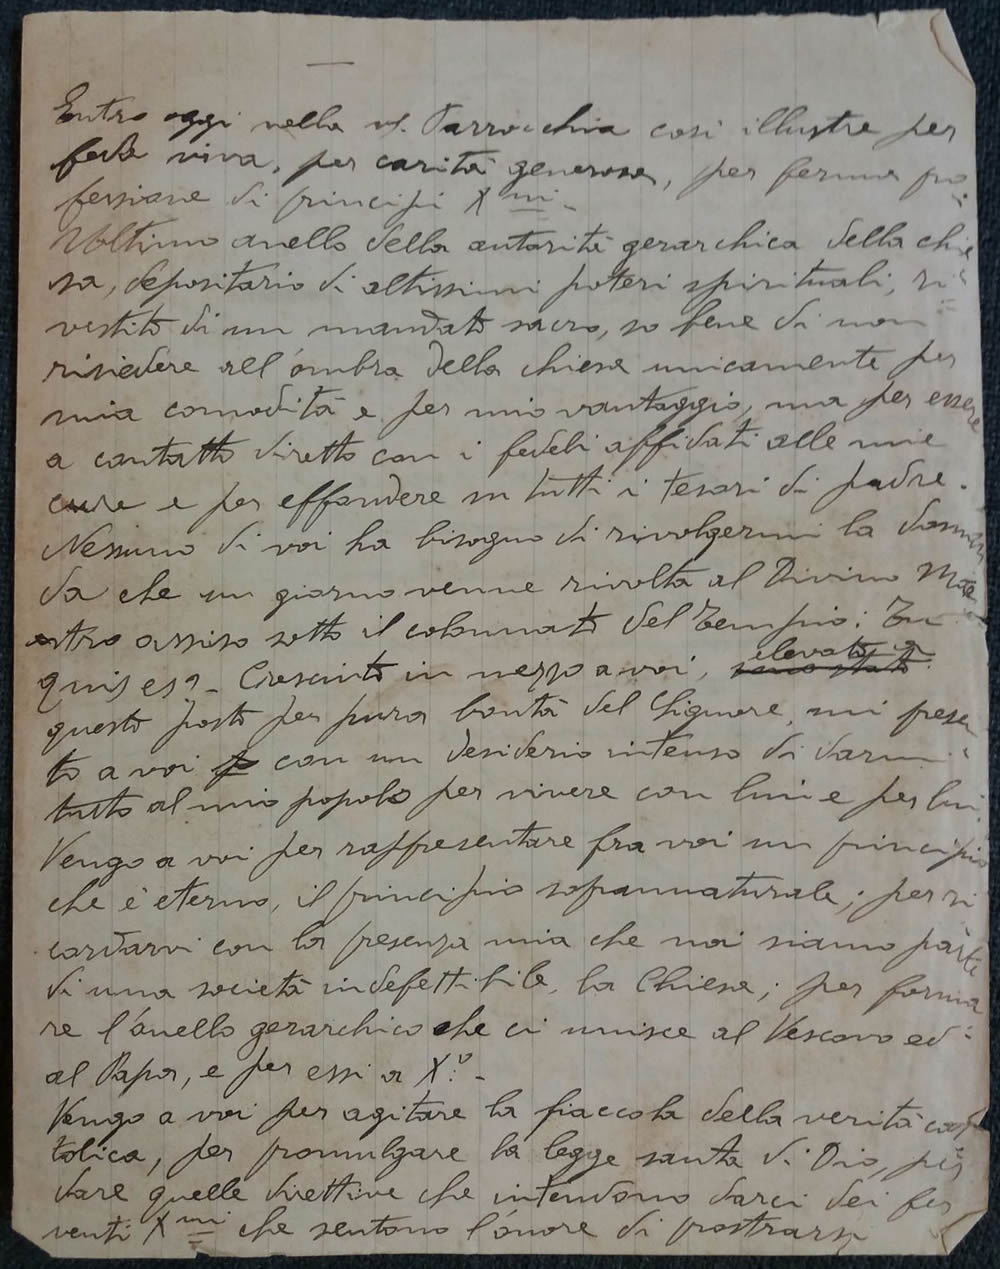 Entro oggi nella vs. Parrocchia così illustre per
fede viva, per carità generosa, per ferma pro
fessione di principi Xmi -
Ultimo anello della autorità gerarchica della chie
sa, depositario di altissimi poteri spirituali, ri
vestito di un mandato sacro, so bene di non
risiedere all'ombra della chiesa unicamente per
mia comodità e per mio vantaggio, ma per essere
a contatto diretto con i fedeli affidati alle mie
cure e per effondere su tutti i tesori di padre.
Nessuno di voi ha bisogno di rivolgermi la doman
da che un giorno venne rivolta al Divino Mae
stro assiso sotto il colonnato del Tempio: Tu
quis es? - Cresciuto in mezzo a voi, elevato a
questo posto per pura bontà del Signore, mi presen
to a voi con un desiderio intenso di darmi
tutto al mio popolo per vivere con lui e per lui.
Vengo a voi per rappresentare fra voi un principio
che è eterno, il principio soprannaturale; per ri
cordarvi con la presenza mia che noi siamo parte
di una società indefettibile, la Chiesa; per forma
re l'anello gerarchico che ci unisce al Vescovo ed
al Papa, e per essi a X.o -
Vengo a voi per agitare la fiaccola della verità cat
tolica, per promulgare la legge santa di Dio, per
dare quelle direttive che intendono darci dei fer
venti Xmi che sentono l'onore di prostrarsi